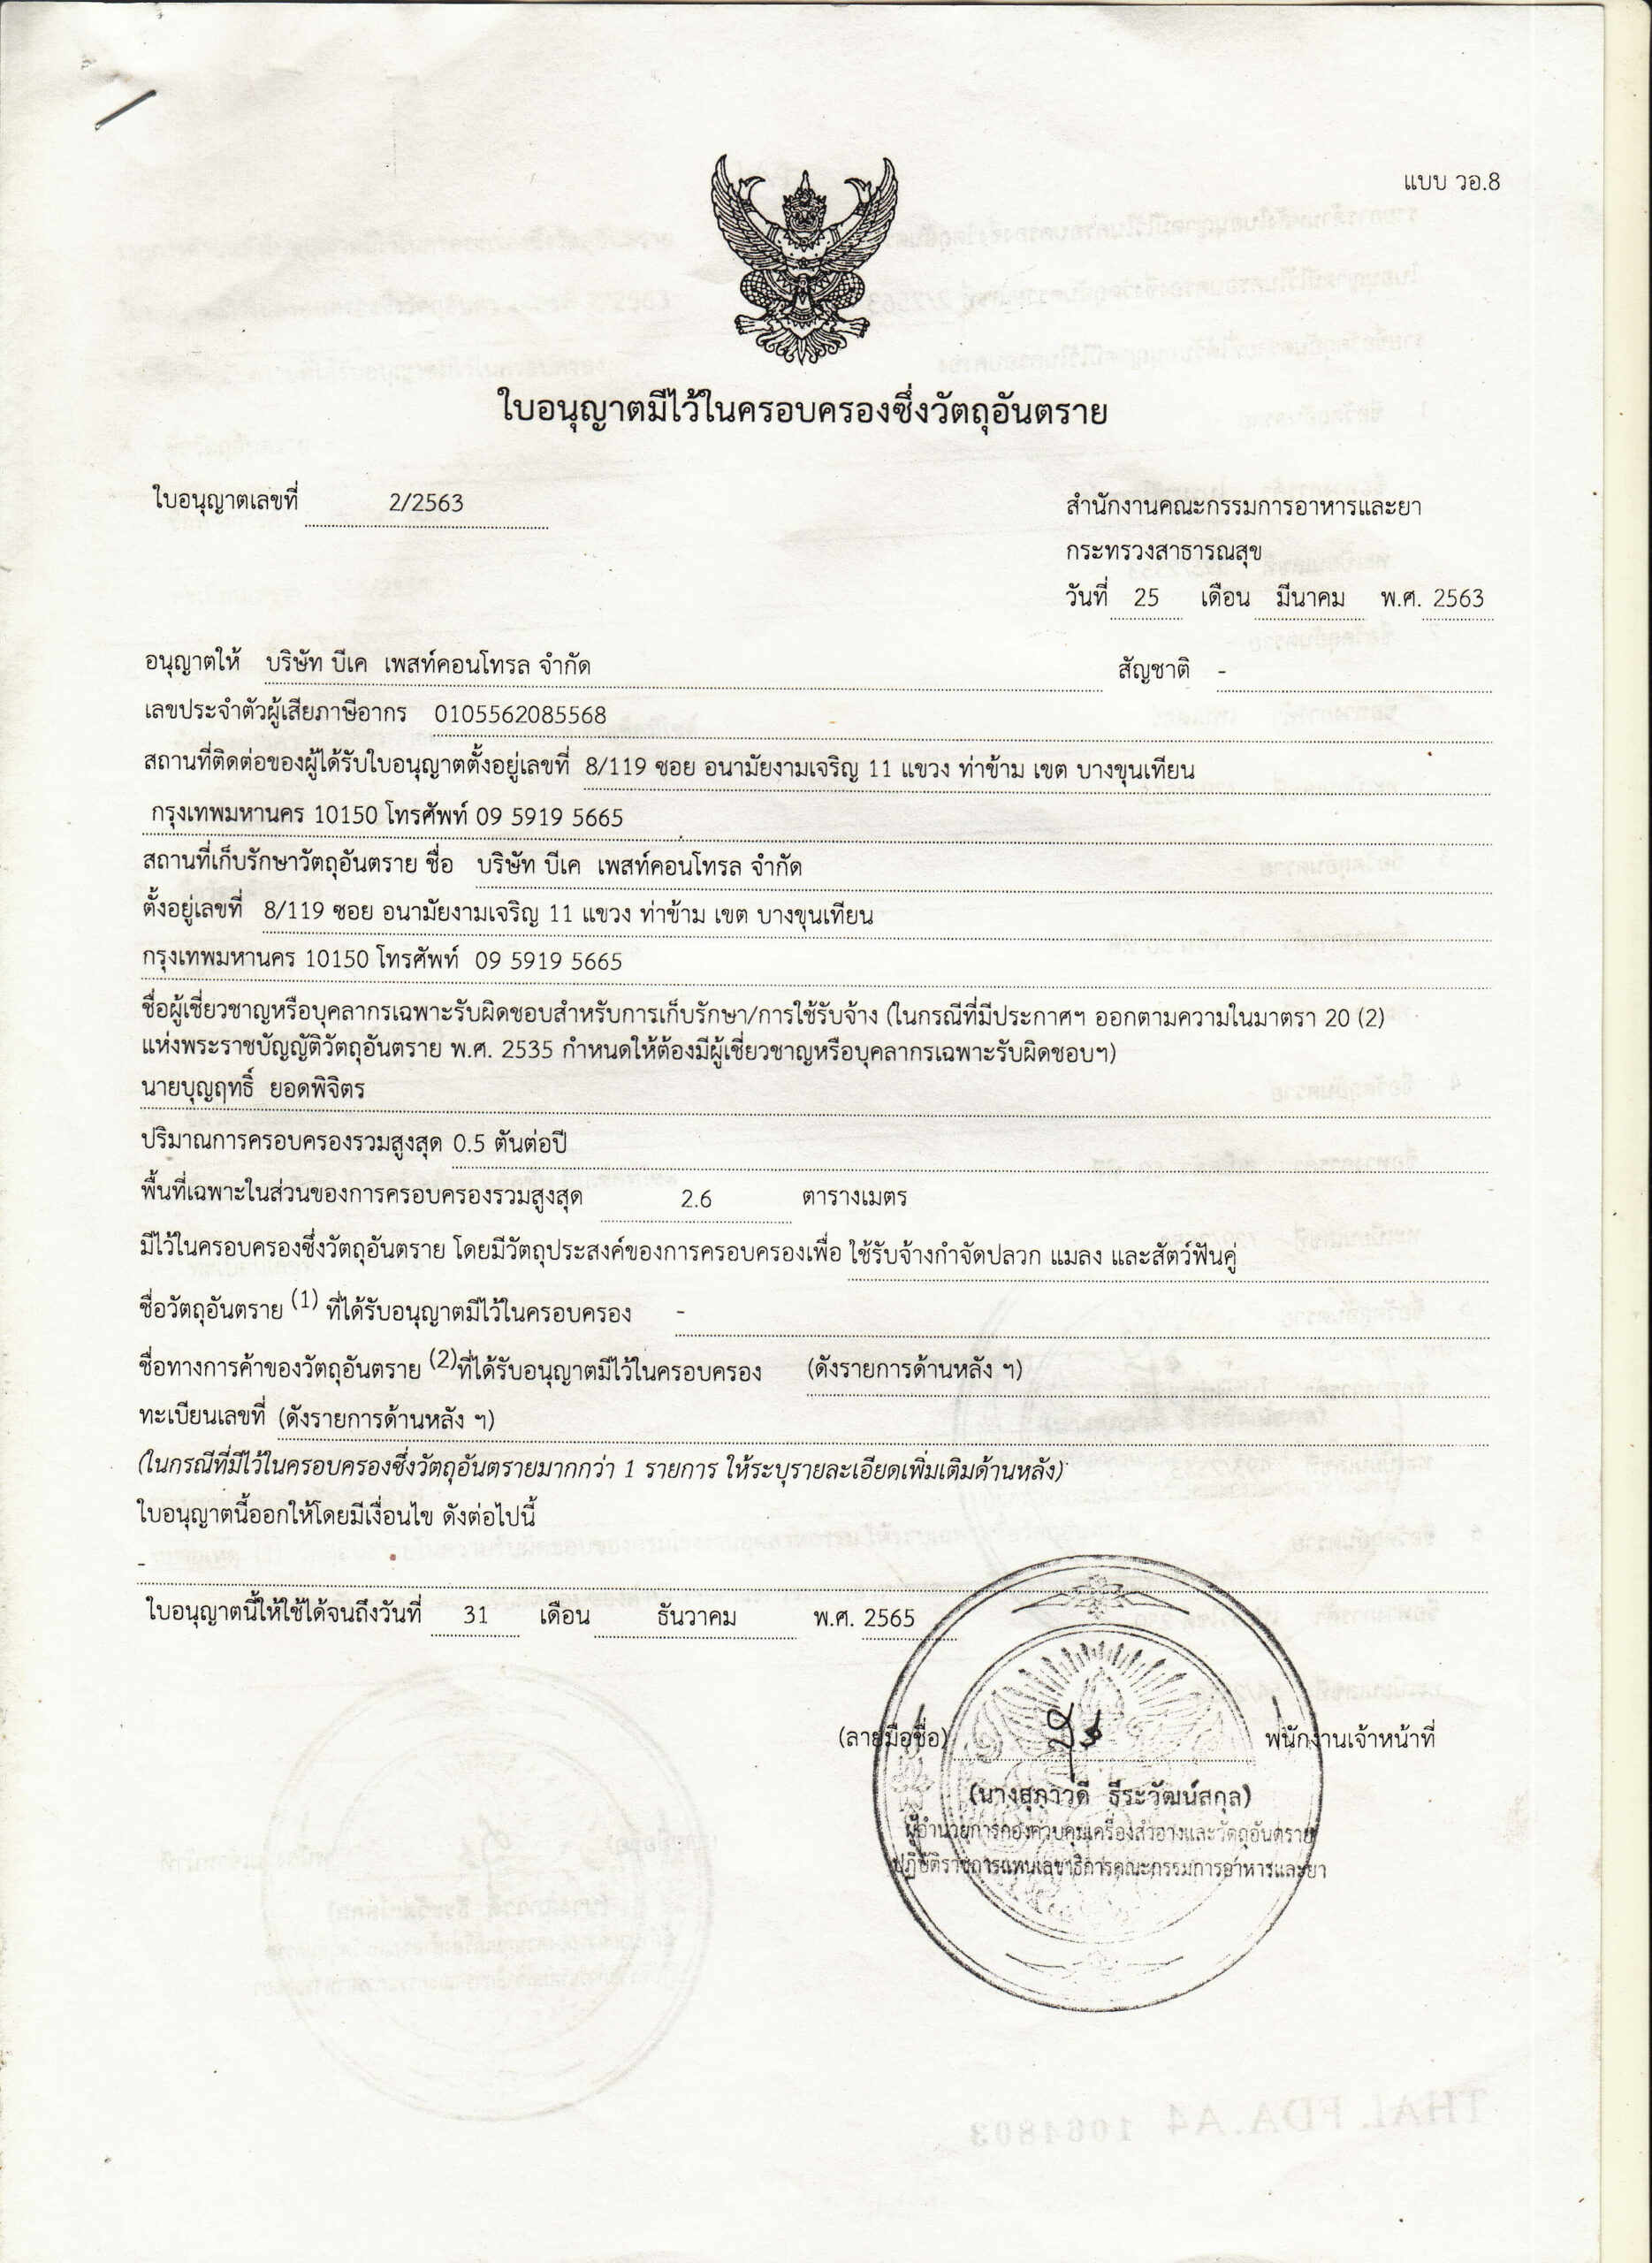 แบบ วอ.8
ใบอนุญาตมีไว้ในครอบครองซึ่งวัตถุอันตราย
ใบอนุญาตเลขที่ 2/2563
สำนักงานคณะกรรมการอาหารและยา
กระทรวงสาธารณสุข
วันที่ 25 เดือน มีนาคม พ.ศ. 2563
อนุญาตให้ บริษัท บีเค เพสท์คอนโทรล จำกัด สัญชาติ -
เลขประจำตัวผู้เสียภาษีอากร 0105562085568
สถานที่ติดต่อของผู้ได้รับใบอนุญาตตั้งอยู่เลขที่ 8/119 ซอย อนามัยงามเจริญ 11 แขวง ท่าข้าม เขต บางขุนเทียน
กรุงเทพมหานคร 10150 โทรศัพท์ 09 5919 5665
สถานที่เก็บรักษาวัตถุอันตราย ชื่อ บริษัท บีเค เพสท์คอนโทรล จำกัด
ตั้งอยู่เลขที่ 8/119 ซอย อนามัยงามเจริญ 11 แขวง ท่าข้าม เขต บางขุนเทียน
กรุงเทพมหานคร 10150 โทรศัพท์ 09 5919 5665
ชื่อผู้เชี่ยวชาญหรือบุคลากรเฉพาะรับผิดชอบสำหรับการเก็บรักษา/การใช้รับจ้าง (ในกรณีที่มีประกาศฯ ออกตามความในมาตรา 20 (2)
แห่งพระราชบัญญัติวัตถุอันตราย พ.ศ. 2535 กำหนดให้ต้องมีผู้เชี่ยวชาญหรือบุคลากรเฉพาะรับผิดชอบฯ)
นายบุญฤทธิ์ ยอดพิจิตร
ปริมาณการครอบครองรวมสูงสุด 0.5 ตันต่อปี
พื้นที่เฉพาะในส่วนของการครอบครองรวมสูงสุด 2.6 ตารางเมตร
มีไว้ในครอบครองซึ่งวัตถุอันตราย โดยมีวัตถุประสงค์ของการครอบครองเพื่อ ใช้รับจ้างกำจัดปลวก แมลง และสัตว์ฟันคู่
ชื่อวัตถุอันตราย (1) ที่ได้รับอนุญาตมีไว้ในครอบครอง -
ชื่อทางการค้าของวัตถุอันตราย (2)ที่ได้รับอนุญาตมีไว้ในครอบครอง (ดังรายการด้านหลัง ฯ)
ทะเบียนเลขที่ (ดังรายการด้านหลัง ฯ)
(ในกรณีที่มีไว้ในครอบครองซึ่งวัตถุอันตรายมากกว่า 1 รายการ ให้ระบุรายละเอียดเพิ่มเติมด้านหลัง)
ใบอนุญาตนี้ออกให้โดยมีเงื่อนไข ดังต่อไปนี้
-
ใบอนุญาตนี้ให้ใช้ได้จนถึงวันที่ 31 เดือน ธันวาคม พ.ศ. 2565
(ลายมือชื่อ) พนักงานเจ้าหน้าที่
(นางสุภาวดี ธีระวัฒน์สกุล)
ผู้อำนวยการกองควบคุมเครื่องสำอางและวัตถุอันตราย
ปฏิบัติราชการแทนเลขาธิการคณะกรรมการอาหารและยา
THAI.FDA.A4 1064803